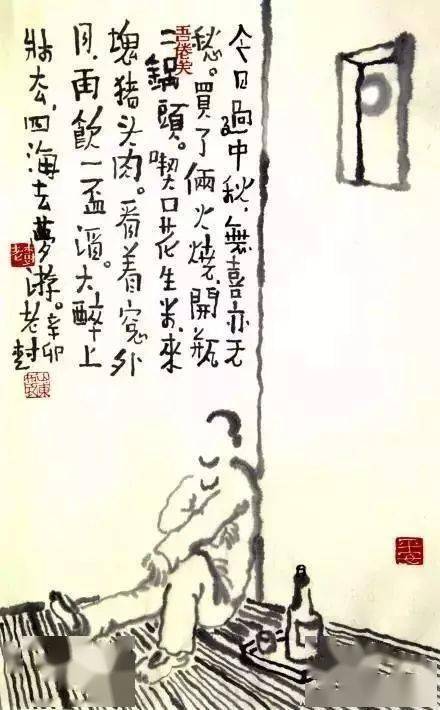 今日過中秋,無喜亦无
愁。買了倆火燒,開瓶
二鍋頭。喫口花生米,來
塊猪头肉。看着窓外
月,再飲一盃酒。大醉上
牀去,四海去夢游。辛卯老樹
吾倦矣
平安